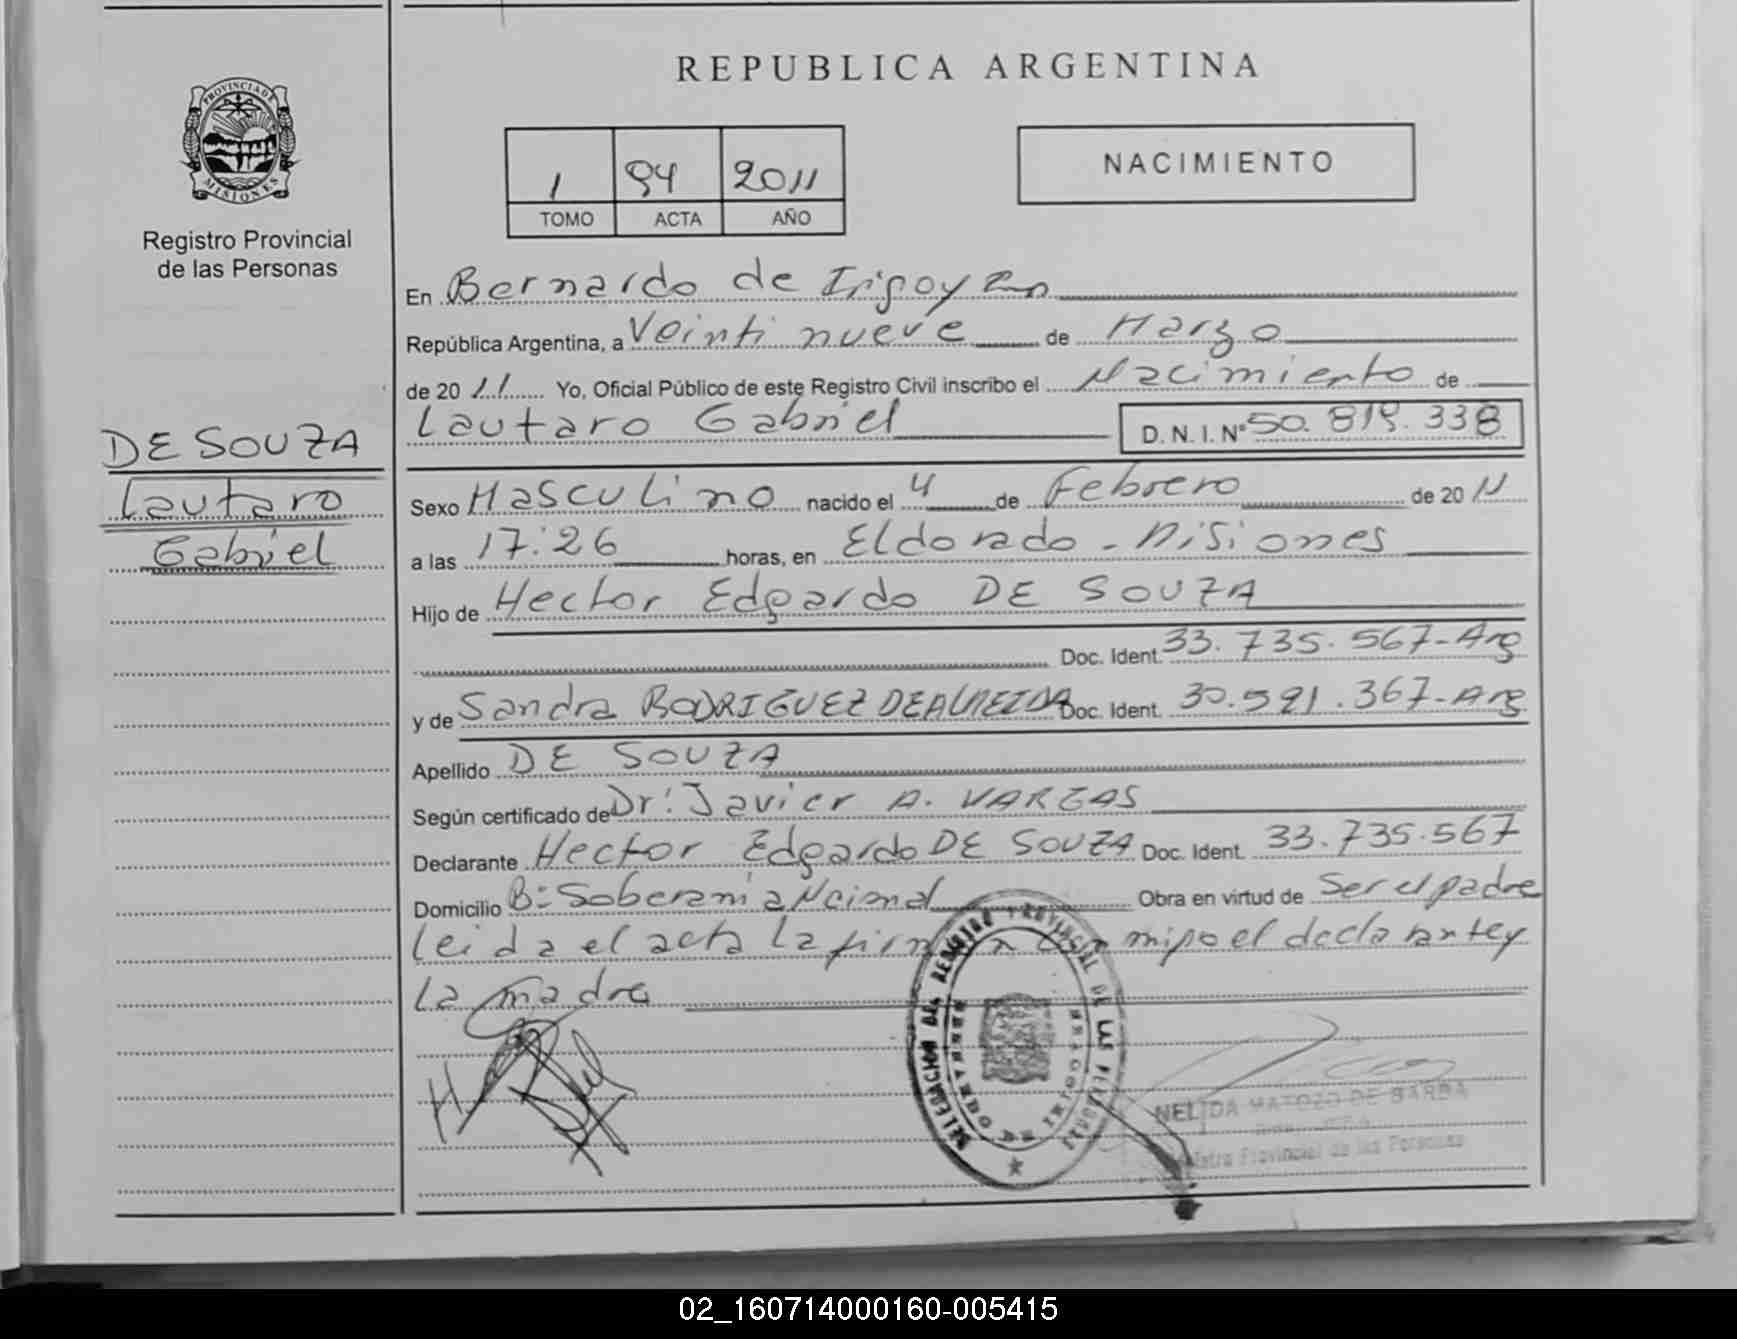 REPUBLICA ARGENTINA
PROVINCIA DE
MISIONES
Registro Provincial
de las Personas
1 94 2011
TOMO ACTA AÑO
NACIMIENTO
DE SOUZA
Lautaro
Gabriel
En Bernardo de Irigoyen
República Argentina, a Veinti nueve de Marzo
de 2011 Yo, Oficial Público de este Registro Civil inscribo el Nacimiento de
Lautaro Gabriel D.N.I. Nº 50.819.338
Sexo Masculino nacido el 4 de Febrero de 2011
a las 17:26 horas, en Eldorado - Misiones
Hijo de Hector Edgardo DE SOUZA
Doc. Ident. 33.735.567-Arg
y de Sandra RODRIGUEZ DEALMEIDA Doc. Ident. 30.591.367-Arg
Apellido DE SOUZA
Según certificado de Dr: Javier A. VARGAS
Declarante Hector Edgardo DE SOUZA Doc. Ident. 33.735.567
Domicilio B: Soberania Ncional Obra en virtud de Ser el padre
Leida el acta La firman con migo el declarante y
La madre
DELEGACION DEL REGISTRO PROVINCIAL DE LAS PERSONAS
NELIDA MATOZO DE BARBA
Registro Provincial de las Personas
02_160714000160-005415